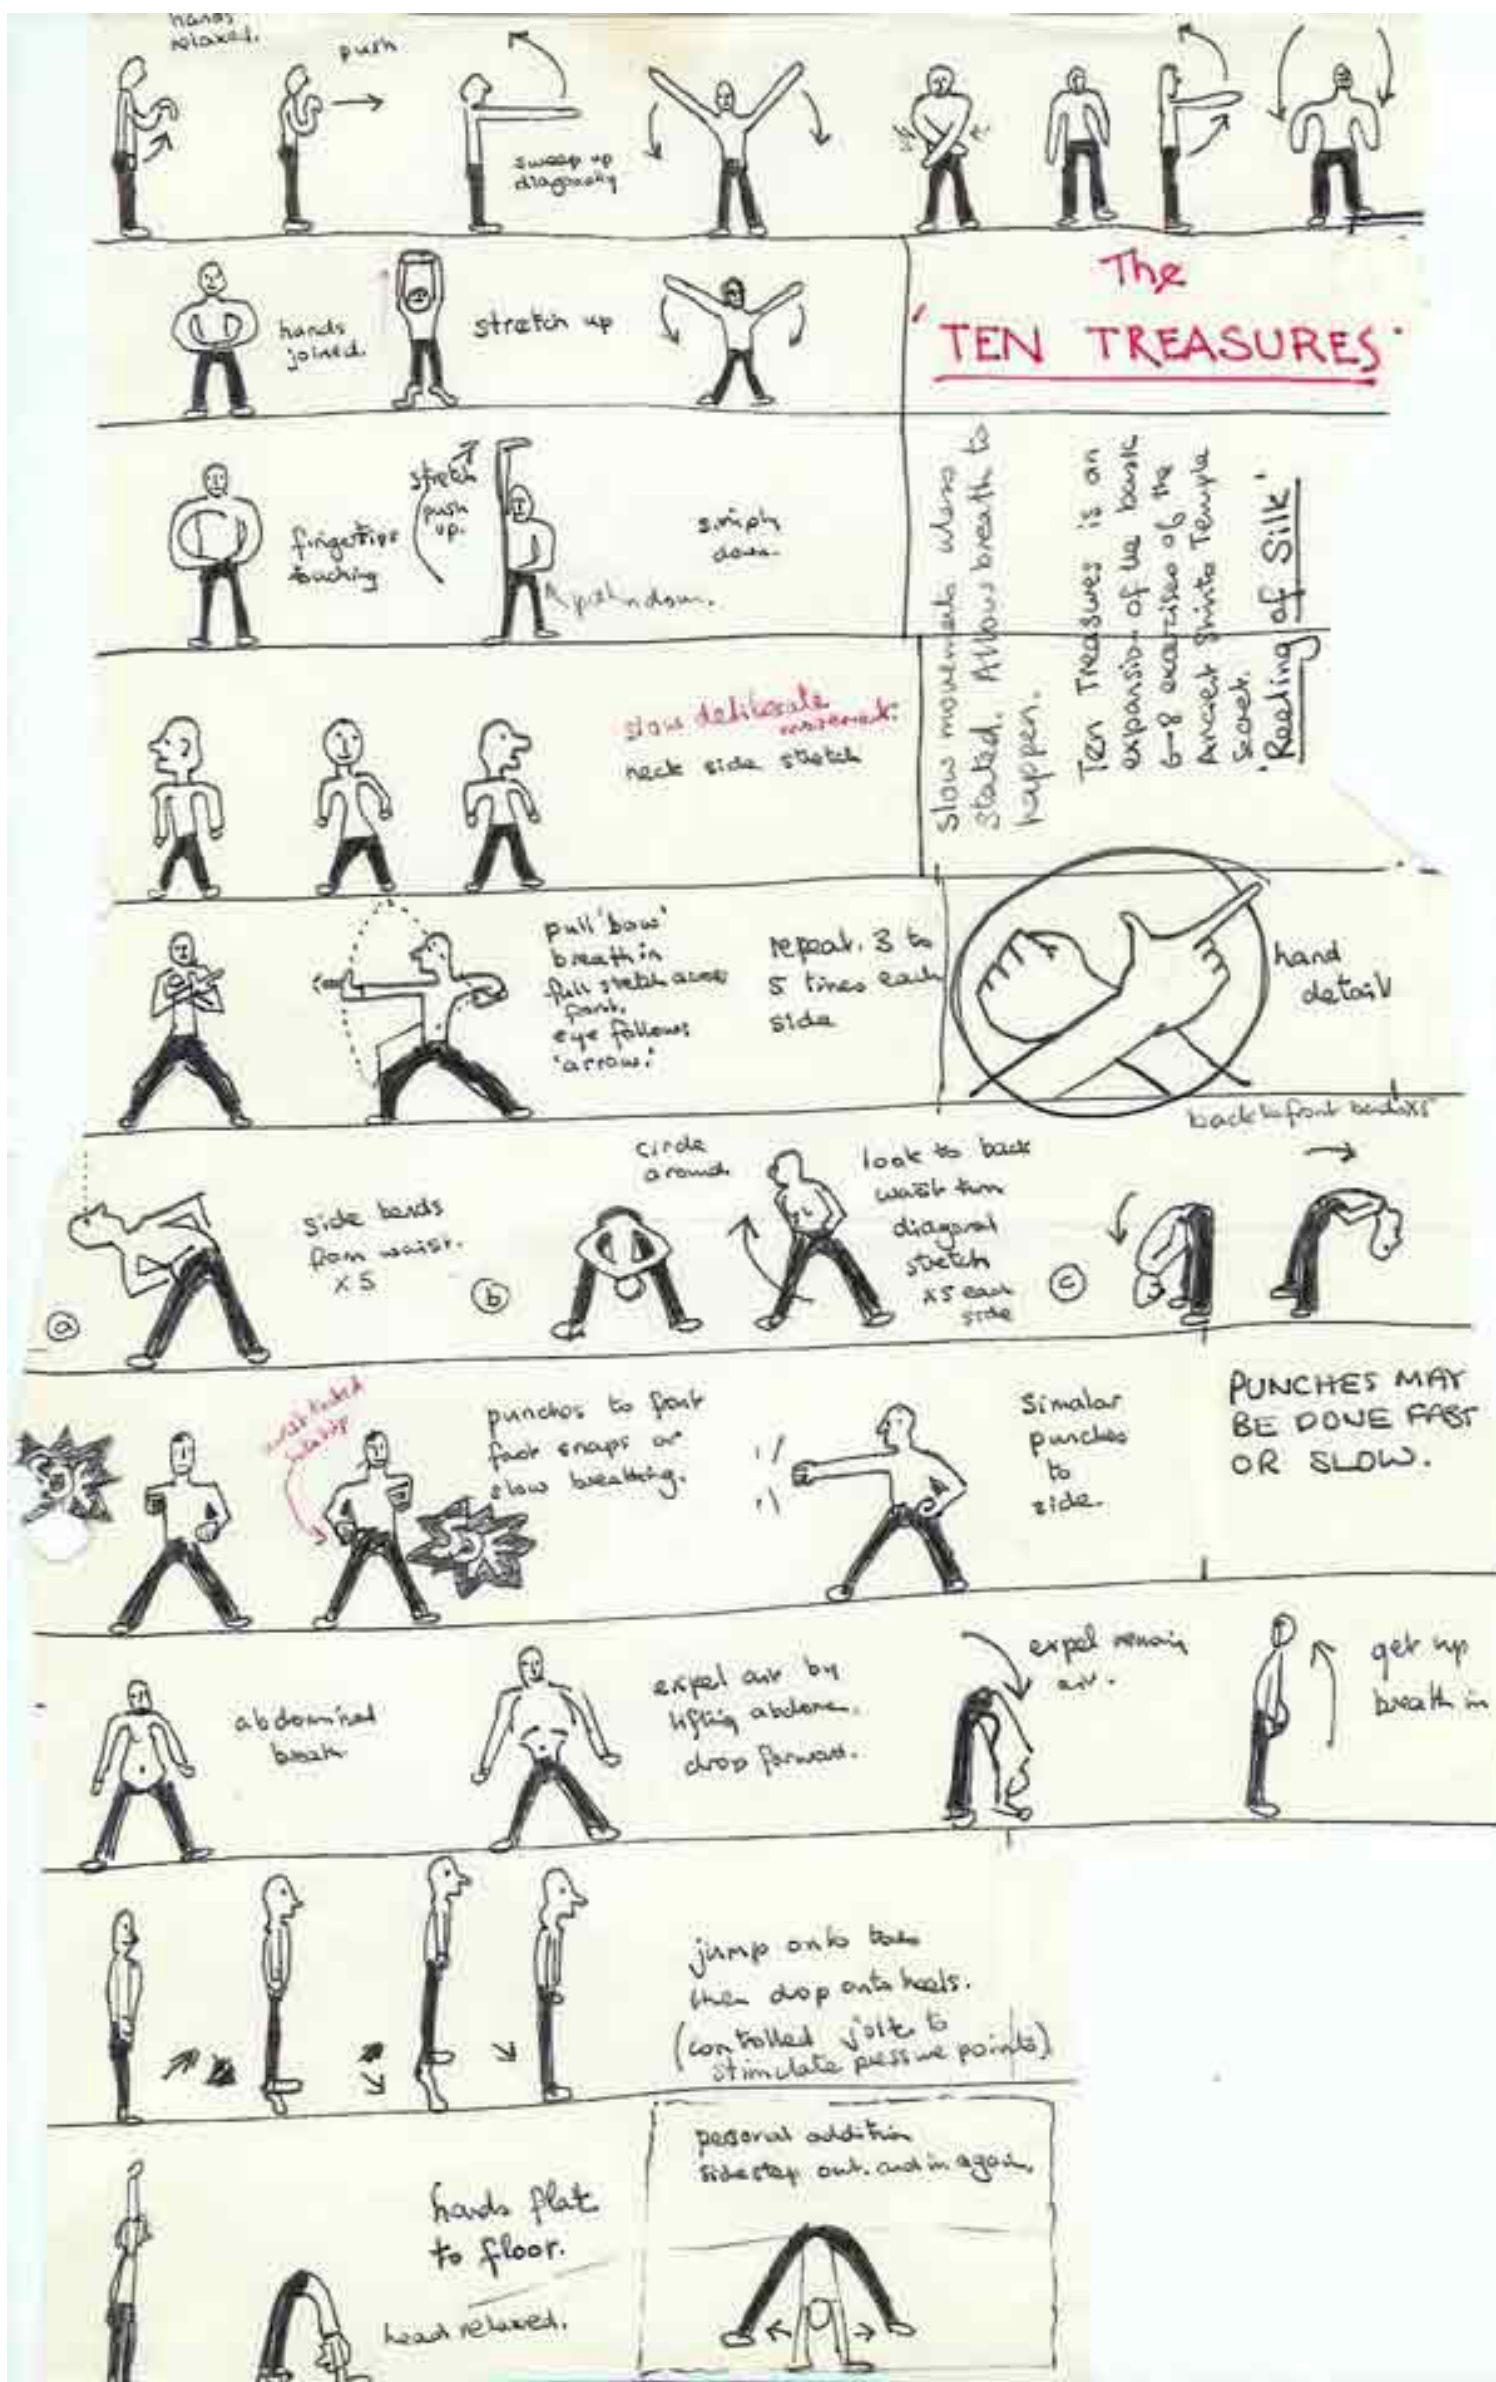 hands
relaxed.
push
sweep up
diagonally
The
'TEN TREASURES'
hands
joined.
stretch up
fingertips
touching
stretch
push
up.
push down.
simply
down.
Slow movements unless
stated. Allow breath to
happen.
Ten Treasures is an
expansion of the basic
6-8 exercises of the
Ancient Shinto Temple
Secret.
'Reeling of Silk'
slow deliberate
movement.
neck side stretch
pull 'bow'
breath in
full stretch across
front.
eye follows
'arrow.'
repeat. 3 to
5 times each
side
hand
detail
a
side bends
from waist.
x 5
b
circle
around
look to back
waist turn
diagonal
stretch
x5 each
side
c
back to front bends x5
punches to front
fast snaps or
slow breathing.
Simalar
punches
to
side.
PUNCHES MAY
BE DONE FAST
OR SLOW.
abdominal
breath.
expel air by
lifting abdomen.
drop forward.
expel remain
air.
get up
breath in
jump onto toes
then drop onto heels.
(controlled jolt to
stimulate pressure points)
hands flat
to floor.
head relaxed.
personal addition
sidestep out. and in again.